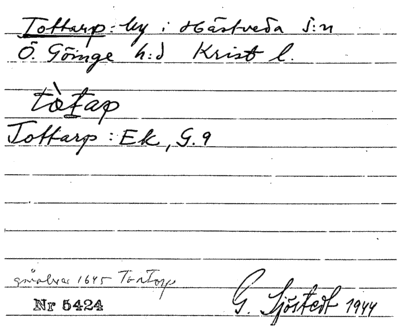 Tottarp: by i Hästveda s:n
Ö. Göinge h:d Krist l.
tòtap
Tottarp: Ek, G. 9
1645 Tortorp
Nr 5424
G. Sjöstedt 1944